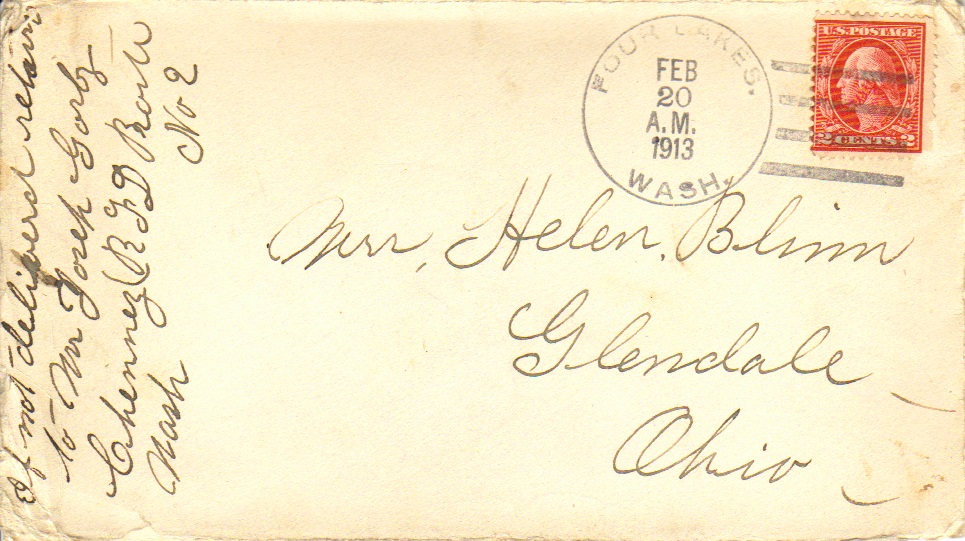 If not delivered return
to Mr Joseph Gorby
Chenney (R F D Route
Wash No 2
FOUR LAKES.
FEB
20
A.M.
1913
WASH.
U.S. POSTAGE
2 CENTS 2
Mrs, Helen, Blinn
Glendale
Ohio